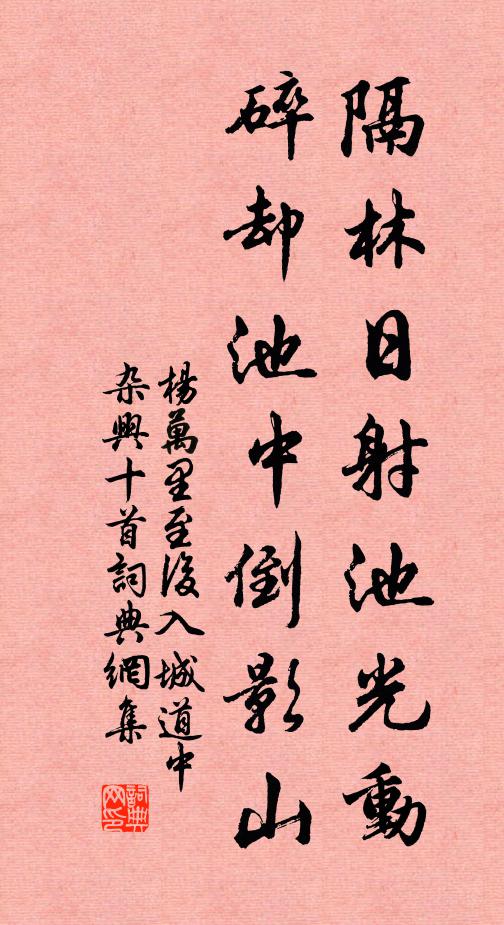 隔林日射池光動
碎却池中倒影山
楊萬里至後入城道中
杂興十首詞典網集
詞典网印